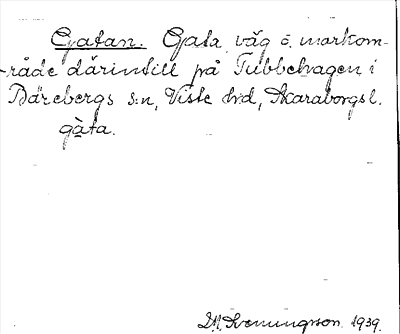 Gatan. Gata, väg o. markom-
råde därintill på Tubbehagen i
Bärebergs s:n, Viste hd, Skaraborgs l.
gàta.
D.N. Svenningson 1939.